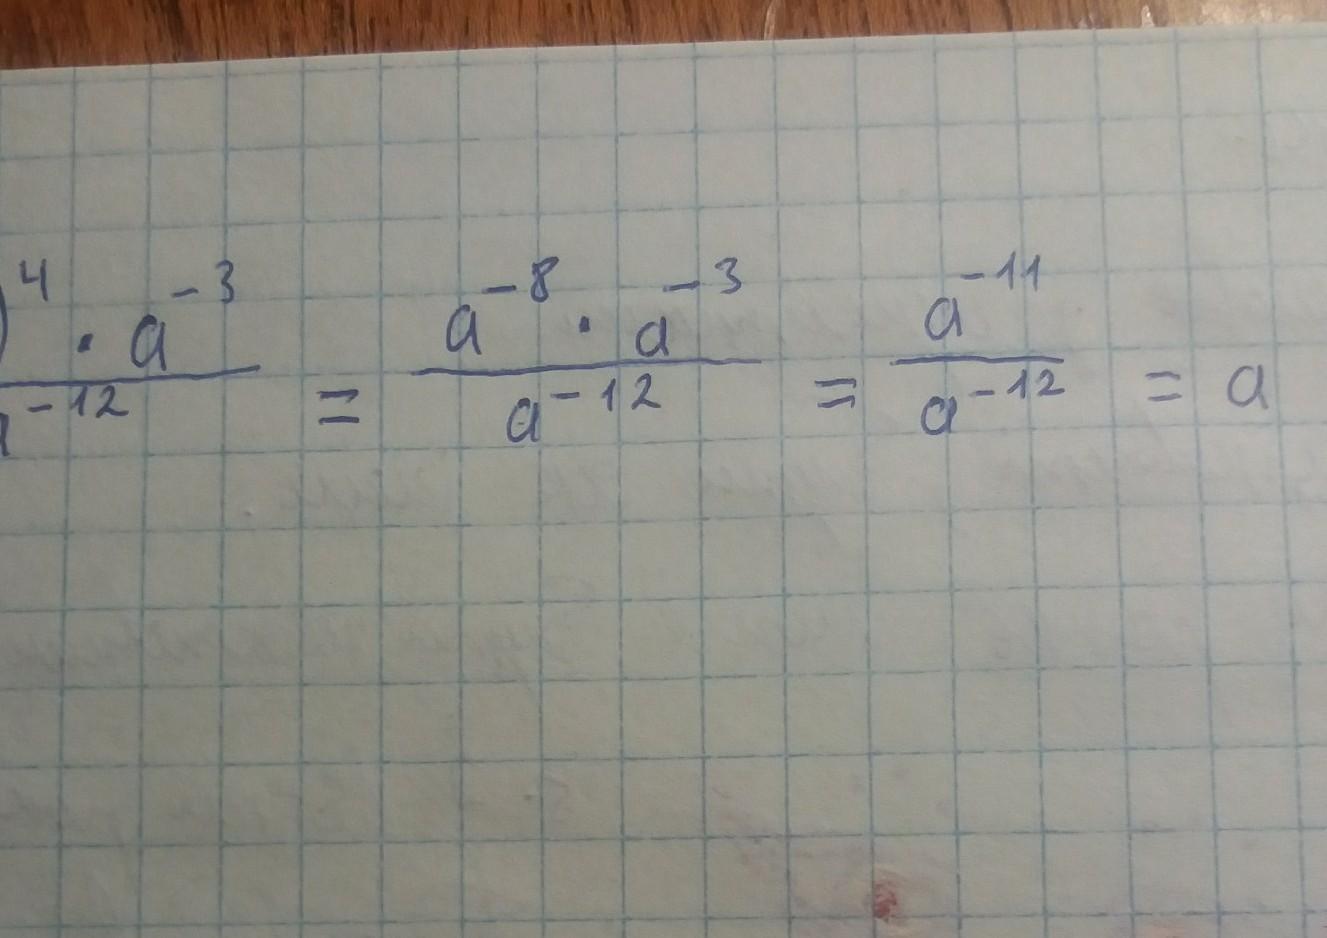 )⁴ · a⁻³ / a⁻¹² = a⁻⁸ · a⁻³ / a⁻¹² = a⁻¹¹ / a⁻¹² = a